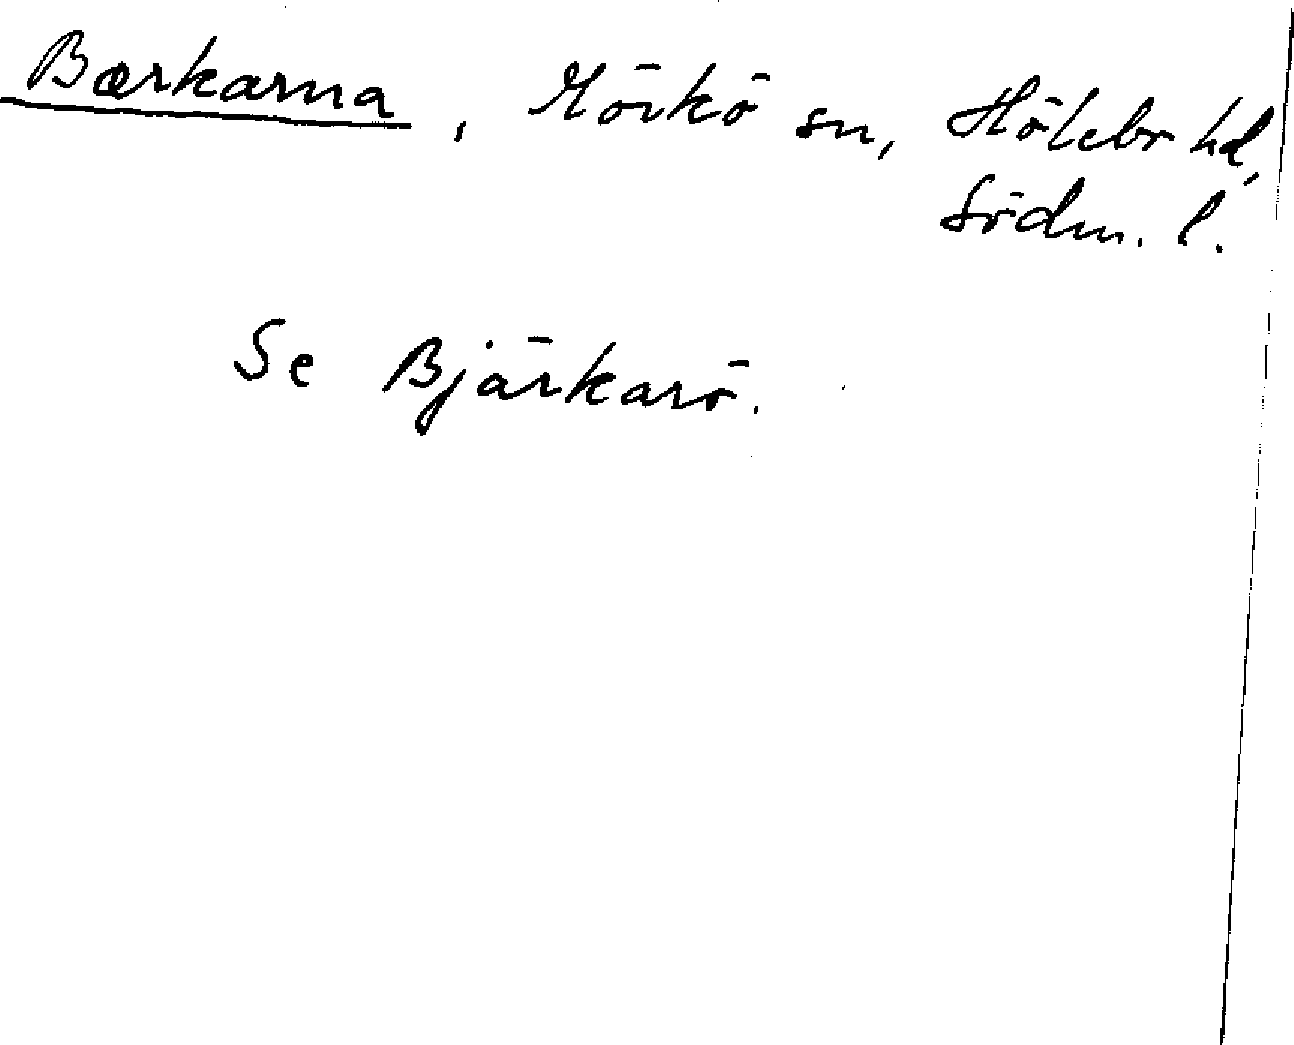 Bærkarna, Mörkö sn, Hölebo hd,
Södm. l.
Se Bjärkarö.